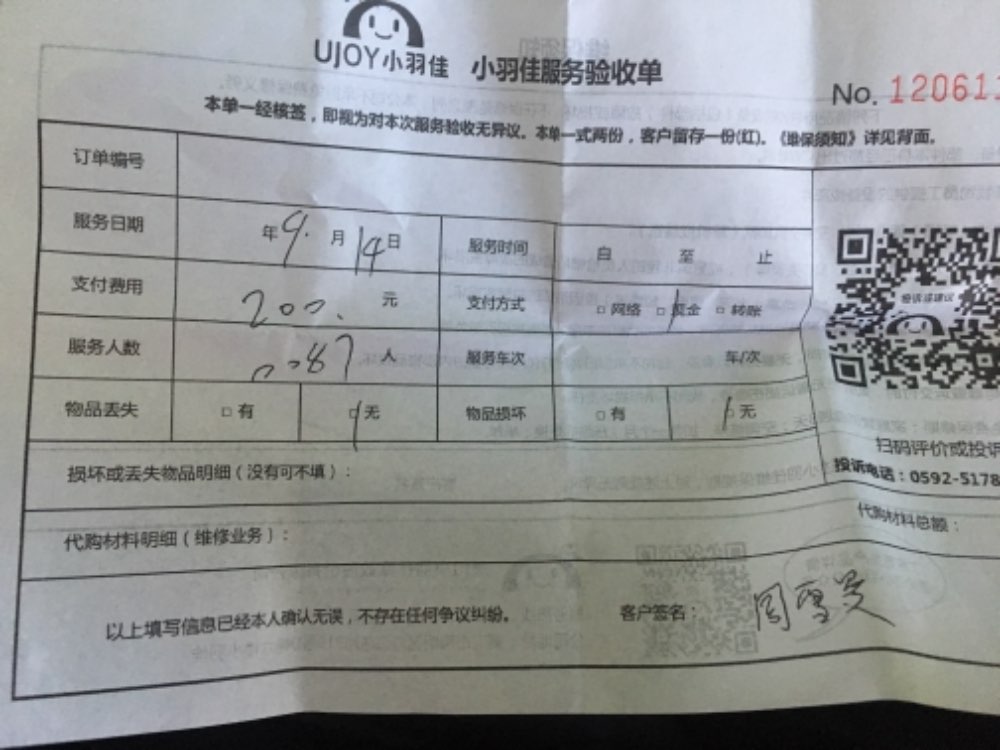 UJOY小羽佳 小羽佳服务验收单
No. 12061
本单一经核签，即视为对本次服务验收无异议。本单一式两份，客户留存一份(红)。《维保须知》详见背面。
订单编号
服务日期 年9月14日 服务时间 自 至 止
支付费用 200.元 支付方式 □网络 □现金 □转账
服务人数 0087人 服务车次 车/次
物品丢失 □有 □无 物品损坏 □有 □无
投诉或建议
扫码评价或投诉
投诉电话：0592-5178
损坏或丢失物品明细（没有可不填）：
代购材料明细（维修业务）： 代购材料总额：
以上填写信息已经本人确认无误，不存在任何争议纠纷。 客户签名：